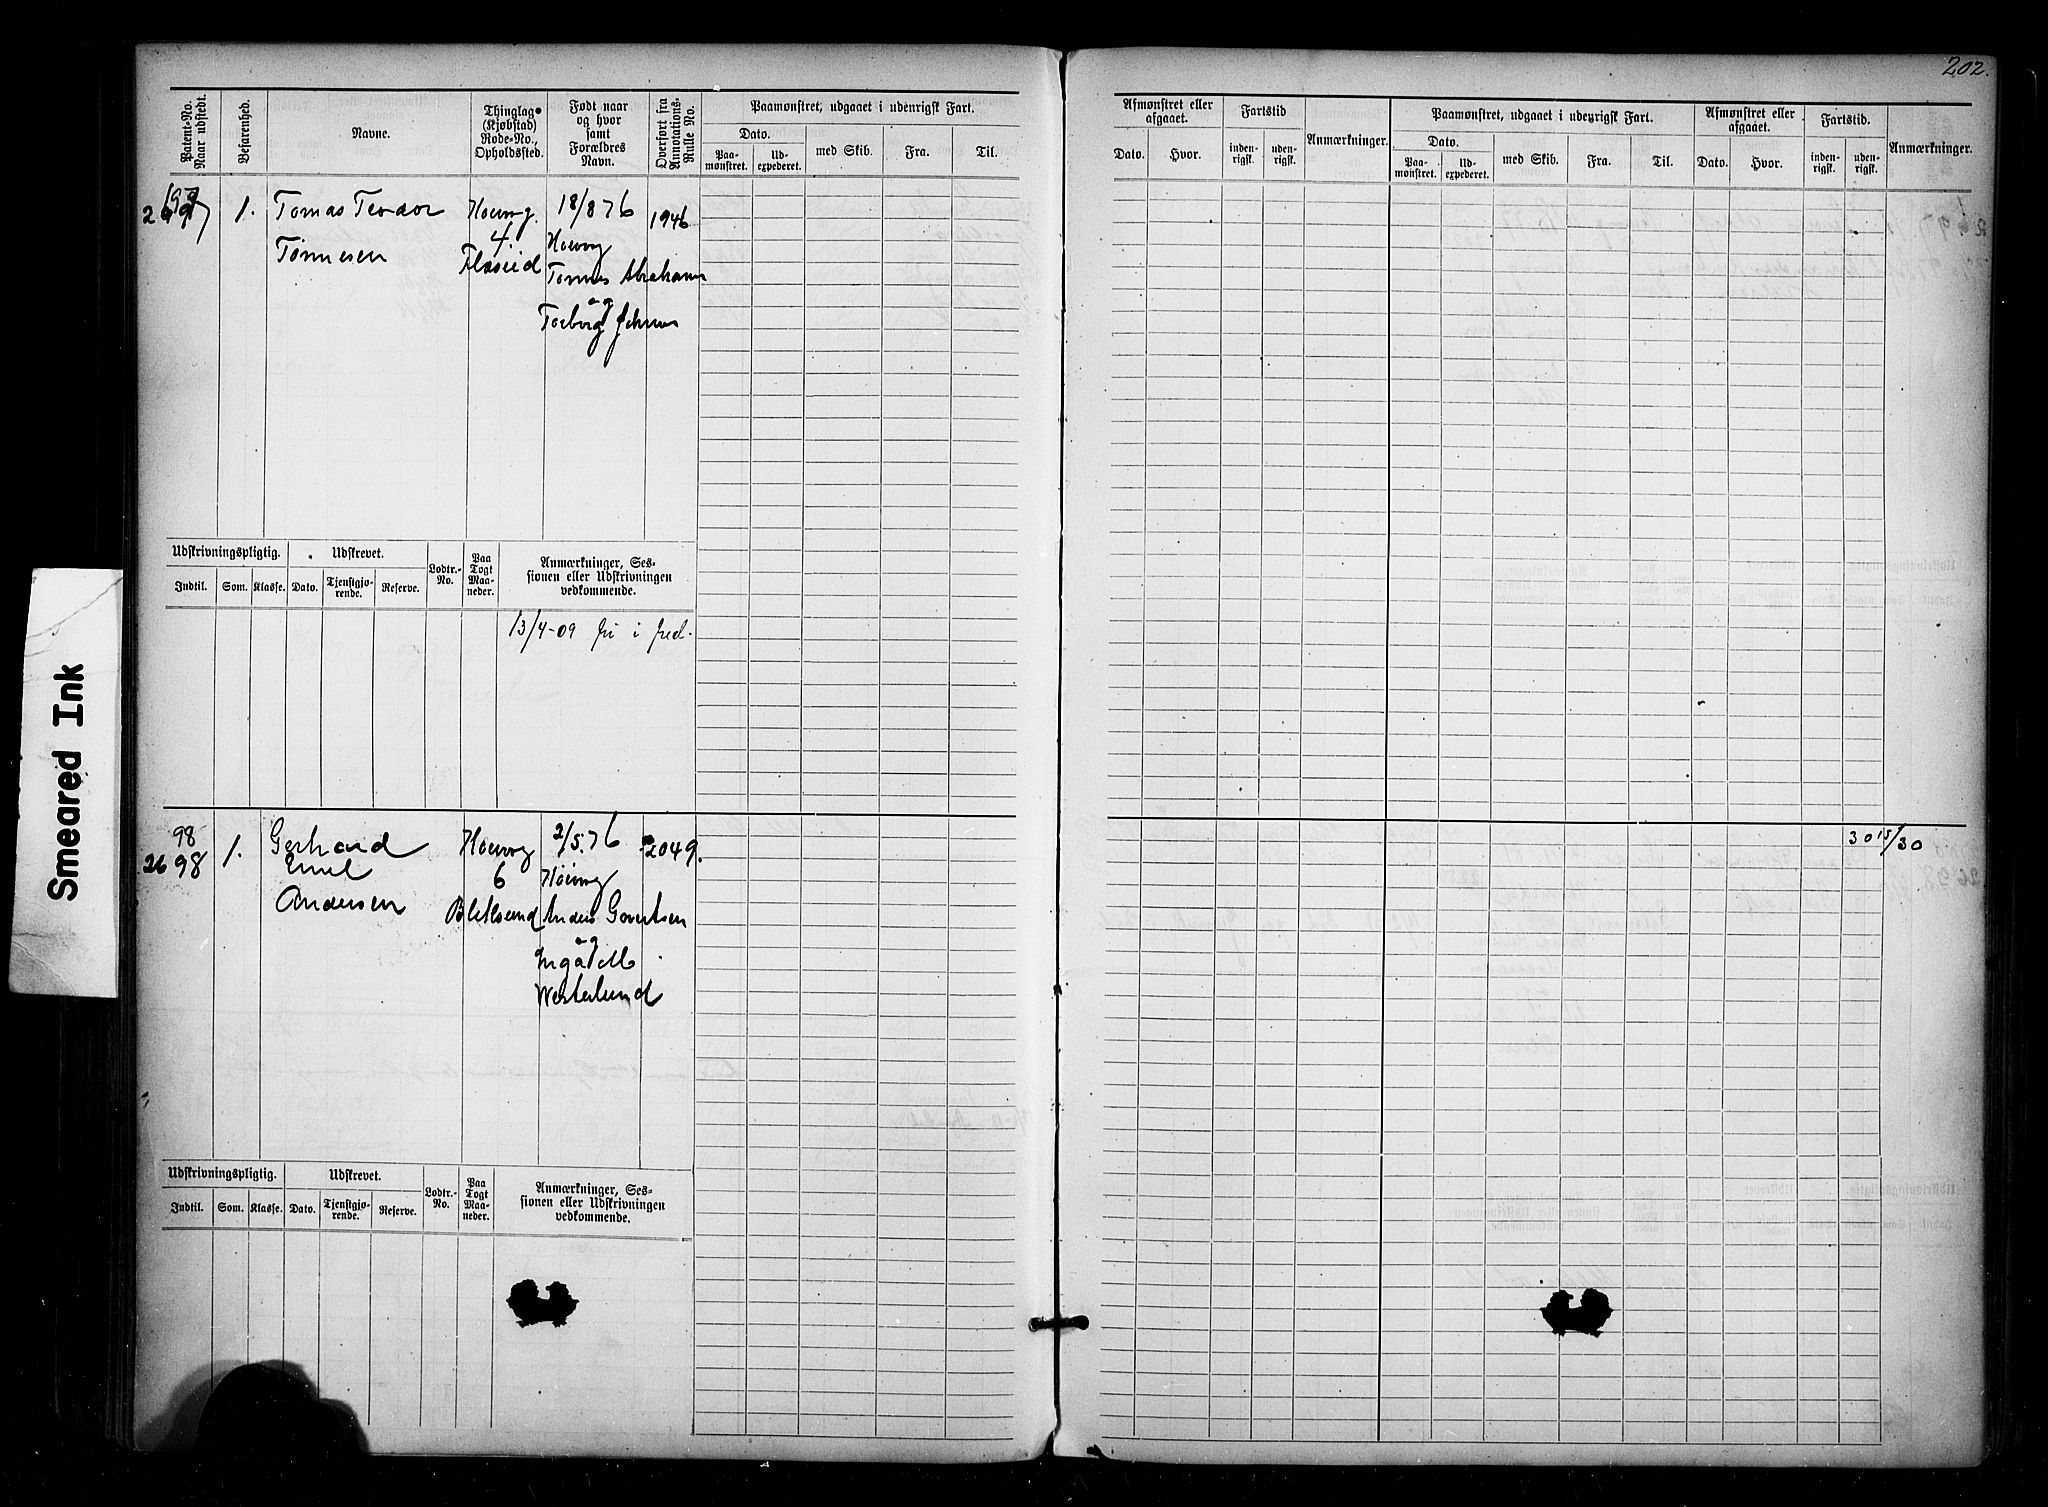 202.
Smeared Ink
Patent-No. Naar udstedt.
Befarenhed.
Navne.
Thinglag (Kjøbstad) Rode-No., Opholdssted.
Født naar og hvor samt Forældres Navn.
Overført fra Annotations-Rulle No.
Paamønstret, udgaaet i udenrigsk Fart.
Dato.
Paamønstret.
Udexpederet.
med Skib.
Fra.
Til.
Afmønstret eller afgaaet.
Dato.
Hvor.
Fartstid
indenrigsk.
udenrigsk.
Anmærkninger.
Paamønstret, udgaaet i udenrigsk Fart.
Dato.
Paamønstret.
Udexpederet.
med Skib.
Fra.
Til.
Afmønstret eller afgaaet.
Dato.
Hvor.
Fartstid.
indenrigsk.
udenrigsk.
Anmærkninger.
1.
Tomas Teodor
Tønnesen
4.
18/8 76
1946
Udskrivningspligtig.
Udskrevet.
Lodtr.-No.
Paa Togt Maaneder.
Anmærkninger, Sessionen eller Udskrivningen vedkommende.
Indtil.
Som.
Klasse.
Dato.
Tjenstgjørende.
Reserve.
13/4-09 fri i fred.
98
2698
1.
Gerhard
Emil
Andersen
6
2/5.76
Anders Govertsen
og
Westerlund
2049.
30 15/30
Udskrivningspligtig.
Udskrevet.
Lodtr.-No.
Paa Togt Maaneder.
Anmærkninger, Sessionen eller Udskrivningen vedkommende.
Indtil.
Som.
Klasse.
Dato.
Tjenstgjørende.
Reserve.